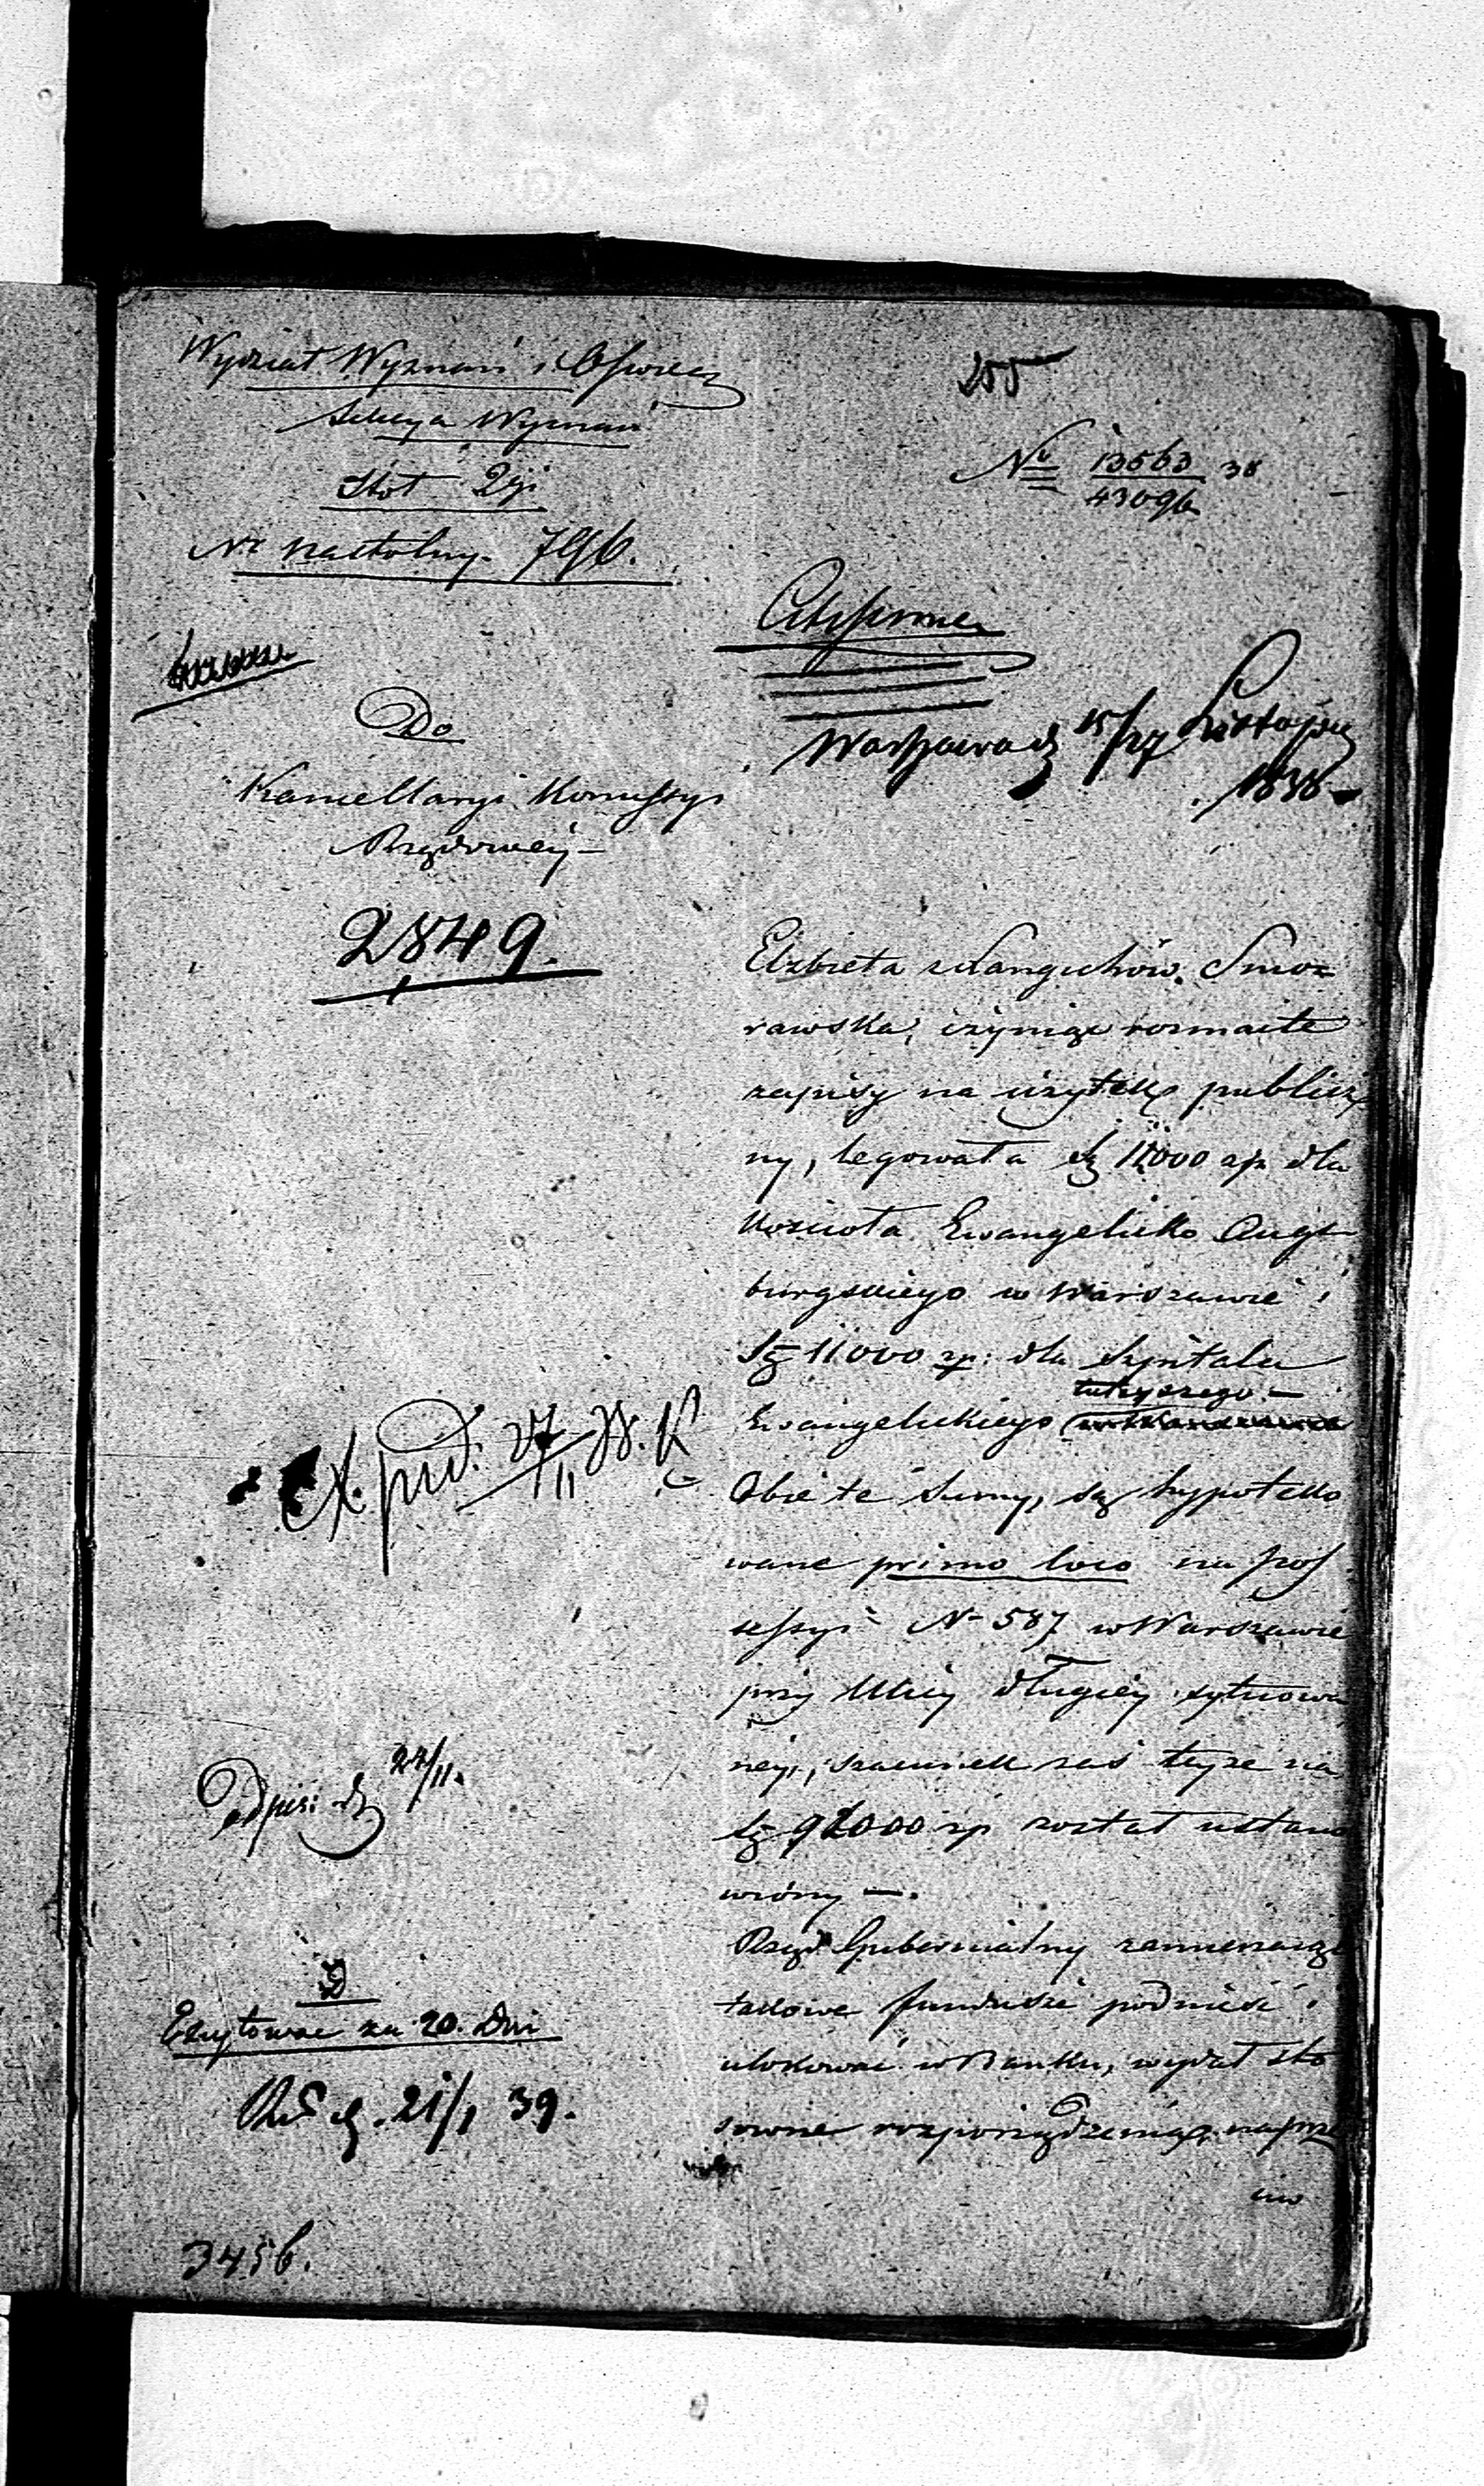 Wydział Wyznań i Oświec
Sekcya Wyznań
Stół 2gi
Nr nastolny. 796.
Do
Kancellaryi Kommissyi
Rządowéy
2849.
Expd. 27/11 38. K
Odpis: d 27/11.
D
Excytować za 20. Dni
d. 21/1 39.
3456.
255
No 13563/43096 38
Warszawa d 15/27 Listopada
1838
Elżbieta z Smo=
rawska, czyniąc rozmaite
zapisy na użytek publicz
ny, legowała Sę 11000 zp dla
Kościoła Ewangelicko Augs
burgskiego w Warszawie i
Sę 11000 zp: dla Szpitala
tutejszego
Ewangelickiego
Obie te Summy, są hypoteko
wane primo loco na pos
sessyi N 587 w Warszawie
przy Ulicy Długiéy sytuowa
néy, szacunek zaś teyże na
Sę 92000 zp został ustano
wiony —.
Rząd Gubernialny zamierzając
takowe fundusze podnieść i
ulokować w Banku, wydał sto
sowne rozporządzenia,